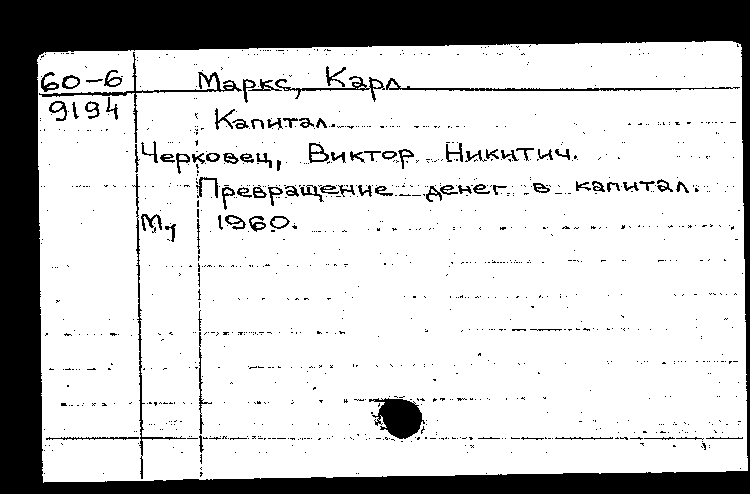 60-6 Маркс, Карл.
9194
Капитал.
Черковец, Виктор Никитич.
Превращение денег в капитал.
М., 1960.